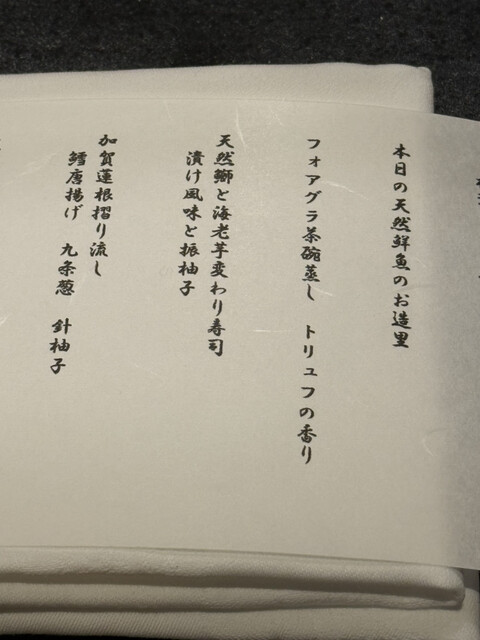 本日の天然鮮魚のお造里
フォアグラ茶碗蒸し　トリュフの香り
天然鰤と海老芋変わり寿司
漬け風味と振柚子
加賀蓮根摺り流し
鱈唐揚げ　九条葱　針柚子